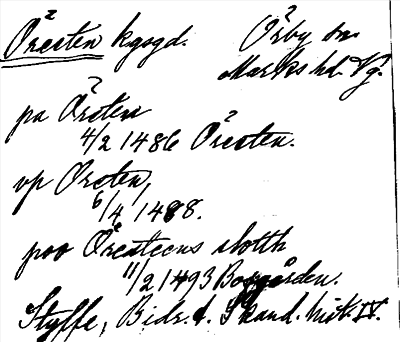 Öresten kgsgd. Örby sn
Marks hd. Vg.
pa Örsten
4/2 1486 Öresten.
vp Oresten,
6/4 1488.
poo Öresteens slotth
11/2 1493 Borrgården.
Styffe, Bidr. t. Skand. hist. IV.